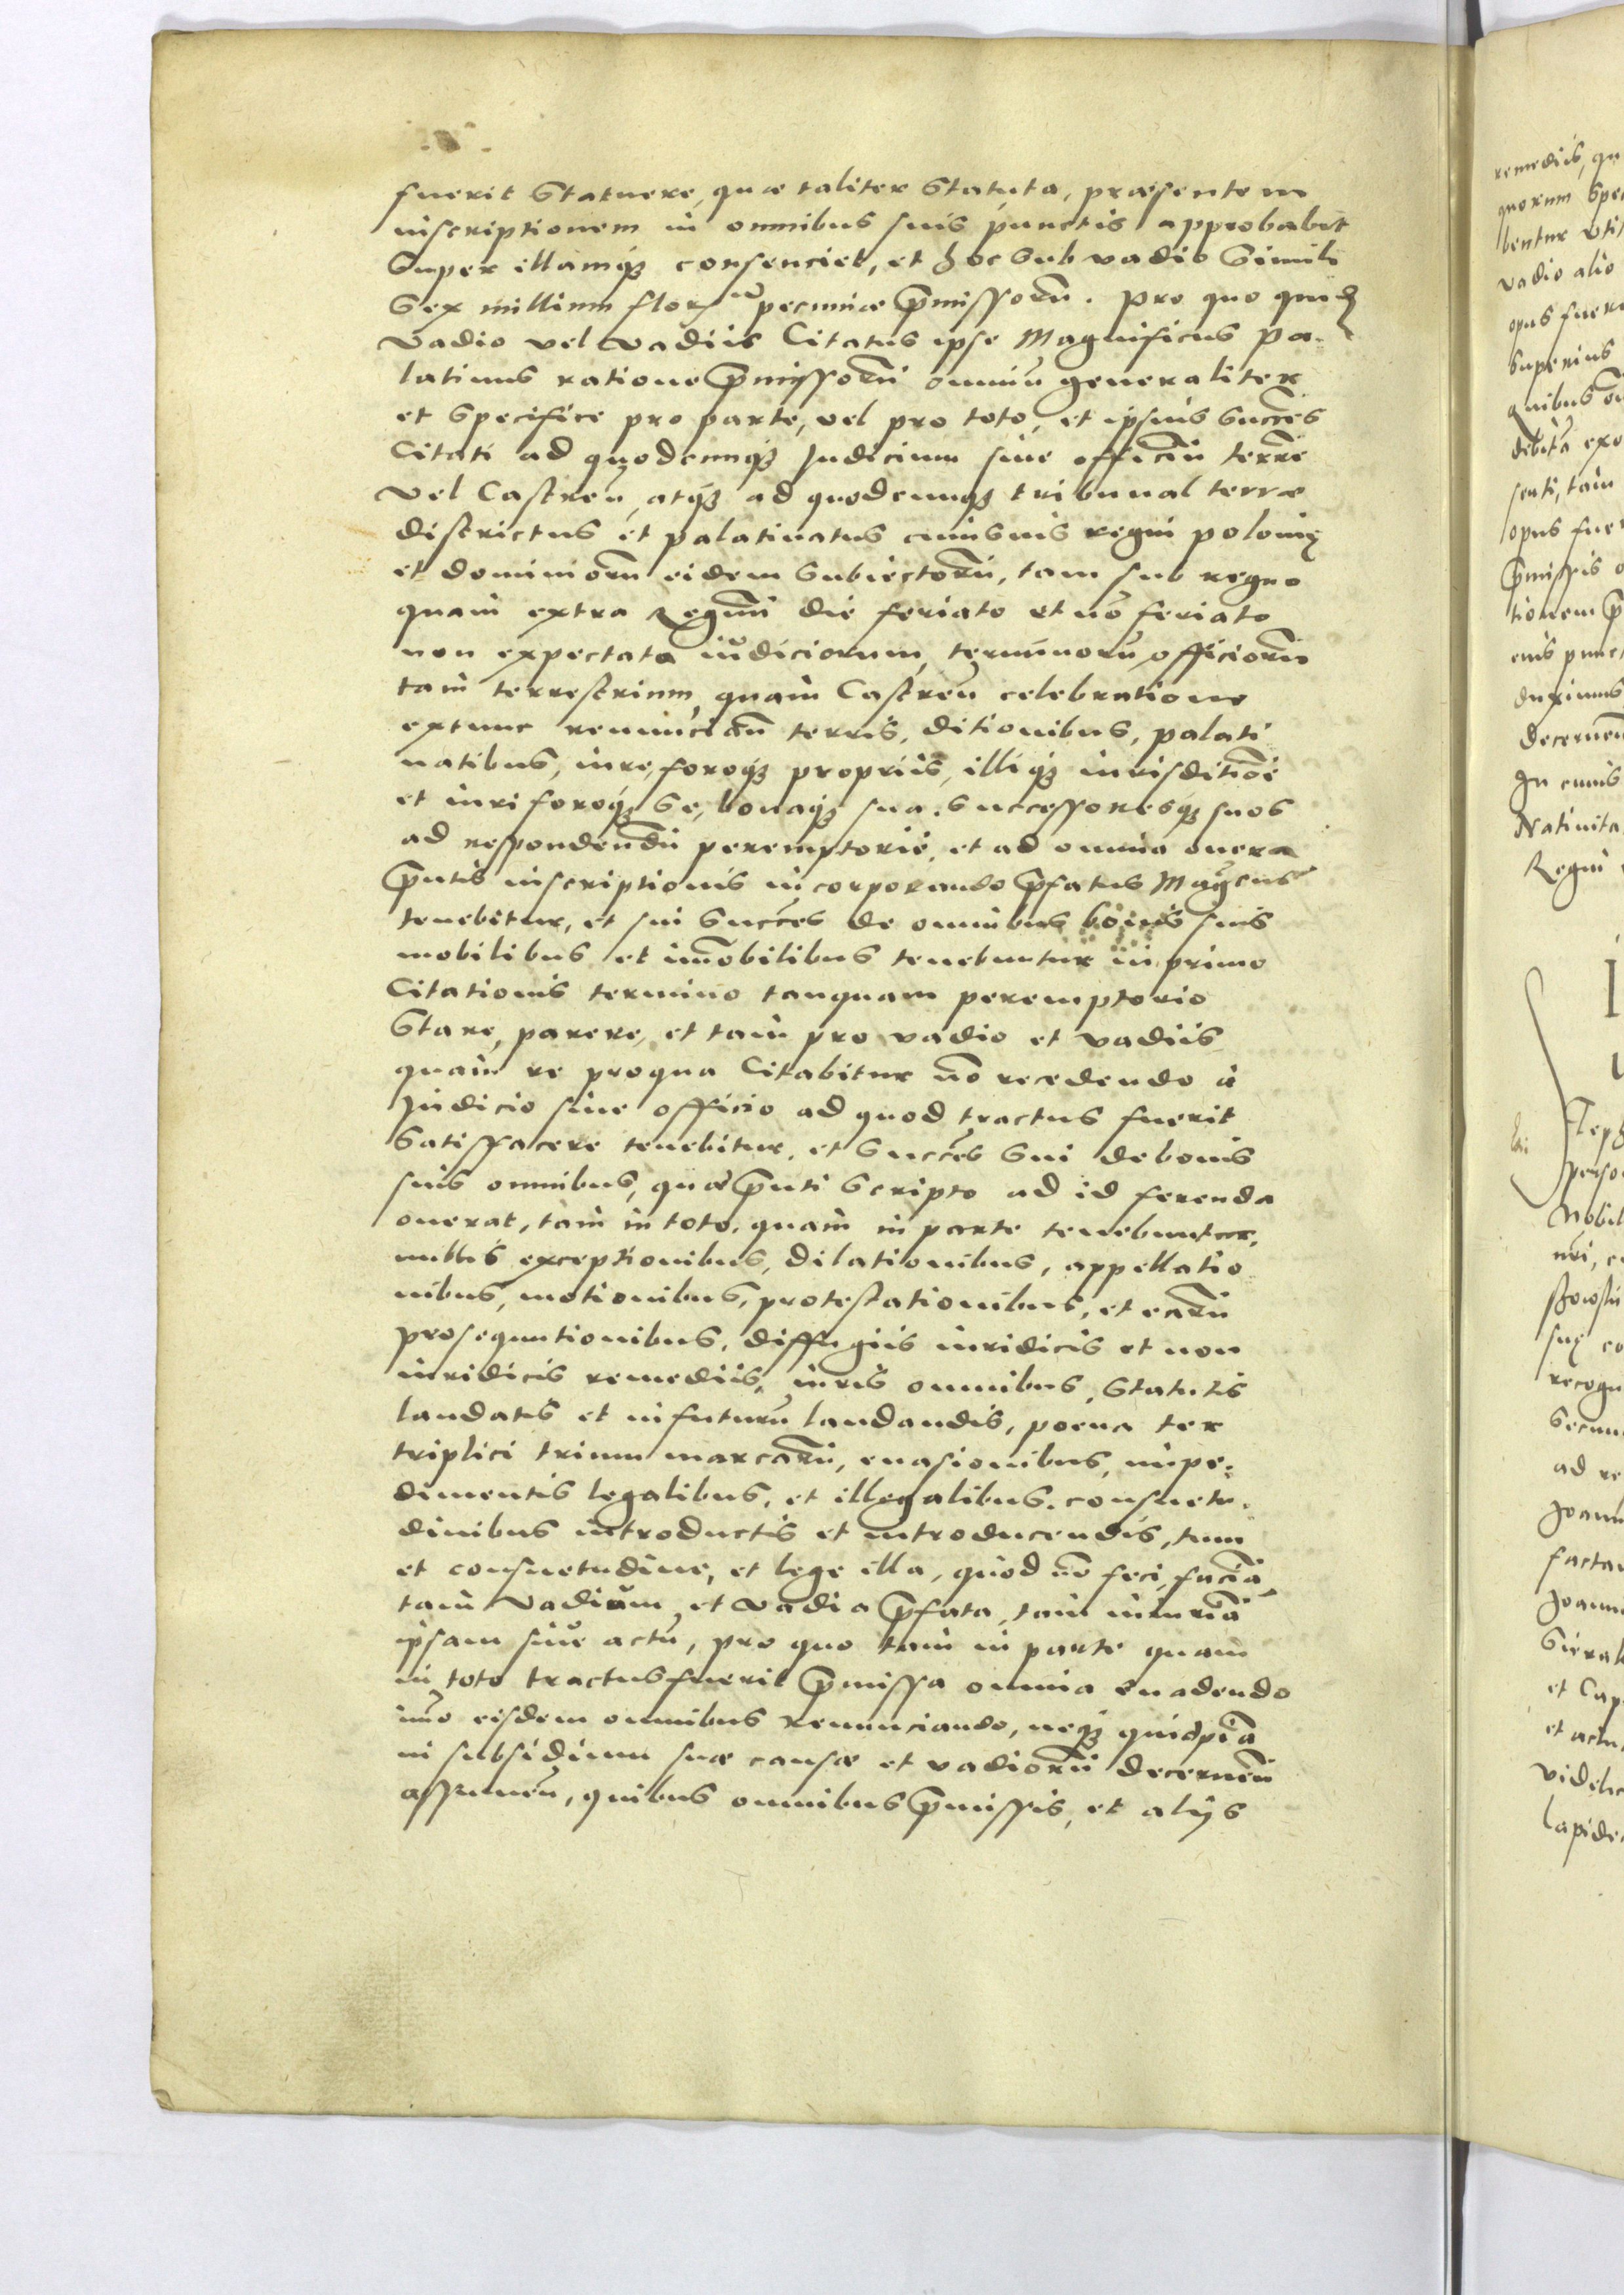 fuerit statuere, quæ taliter statuta, præsentem
inscriptionem in omnibus suis punctis approbabit
super illamq3 consenciet, et hoc sub vadio simili
sex millium flor pecuniæ pmissorū. Pro quo quid
vadio vel vadiis Citatus ipse Magnificus Pa-
latinus ratione pmissorū omniū generaliter
et specifice pro parte, vel pro toto, et ipsius succes
Citati ad quodcunq3 Judicium siue officiū terre
vel Castreñ, atq3 ad quodcunq3 tribunal terræ
districtus et palatinatus cuiusuis regni polonię
et dominiorū eidem subiectorū, tam sub regno
quam extra Regnū die feriato et nō feriato
non expectata iudiciorum, terminorū officiorū
tam terrestrium, quam Castreñ celebratione
extunc renunciañ terris, ditionibus, palati
natibus, iure, foroq3 propriis, illiq3 iurisditioñi
et iuri foroq3 se, bonaq3 sua. successoresq3 suos
ad respondendū peremptorie, et ad omnia onera
pntis inscriptionis incorporando pfatus Magcus
tenebitur, et sui succes de omnibus bonis suis
mobilibus et imobilibus tenebuntur in primo
Citationis termino tanquam peremptorio
Stare, parere, et tam pro vadio et vadiis
quam re pro qua Citabitur nō recedendo à
Judicio siue officio ad quod tractus fuerit
satisfacere tenebitur, et succes sui de bonis
suis omnibus, quæ pnti scripto ad id ferenda
onerat, tam in toto, quam in parte tenebuntur,
nullis exceptionibus, dilationibus, appellatio
nibus, motionibus, protestationibus, et earū
prosequutionibus, diffugiis iuridicis et non
iuridicis remediis, iuris omnibus, statutis
laudatis et in futurū laudandis, poena ter
triplici trium marcarū, euasionibus, impe-
dimentis legalibus, et illegalibus, consuetu-
dinibus introductis et introducendis, tum
et consuetudine, et lege illa, quod nō feci, faciā
tam vadium, et vadia pfata, tam iniuriā
ipsam siue actū, pro quo tam in parte quam
in toto tractus fuerit pmissa omnia euadendo
imo eisdem omnibus renunciando, neq3 quidpiā
in subsidium suæ causæ et vadiorū decerneñ
assumeñ, quibus omnibus pmissis, et aliis